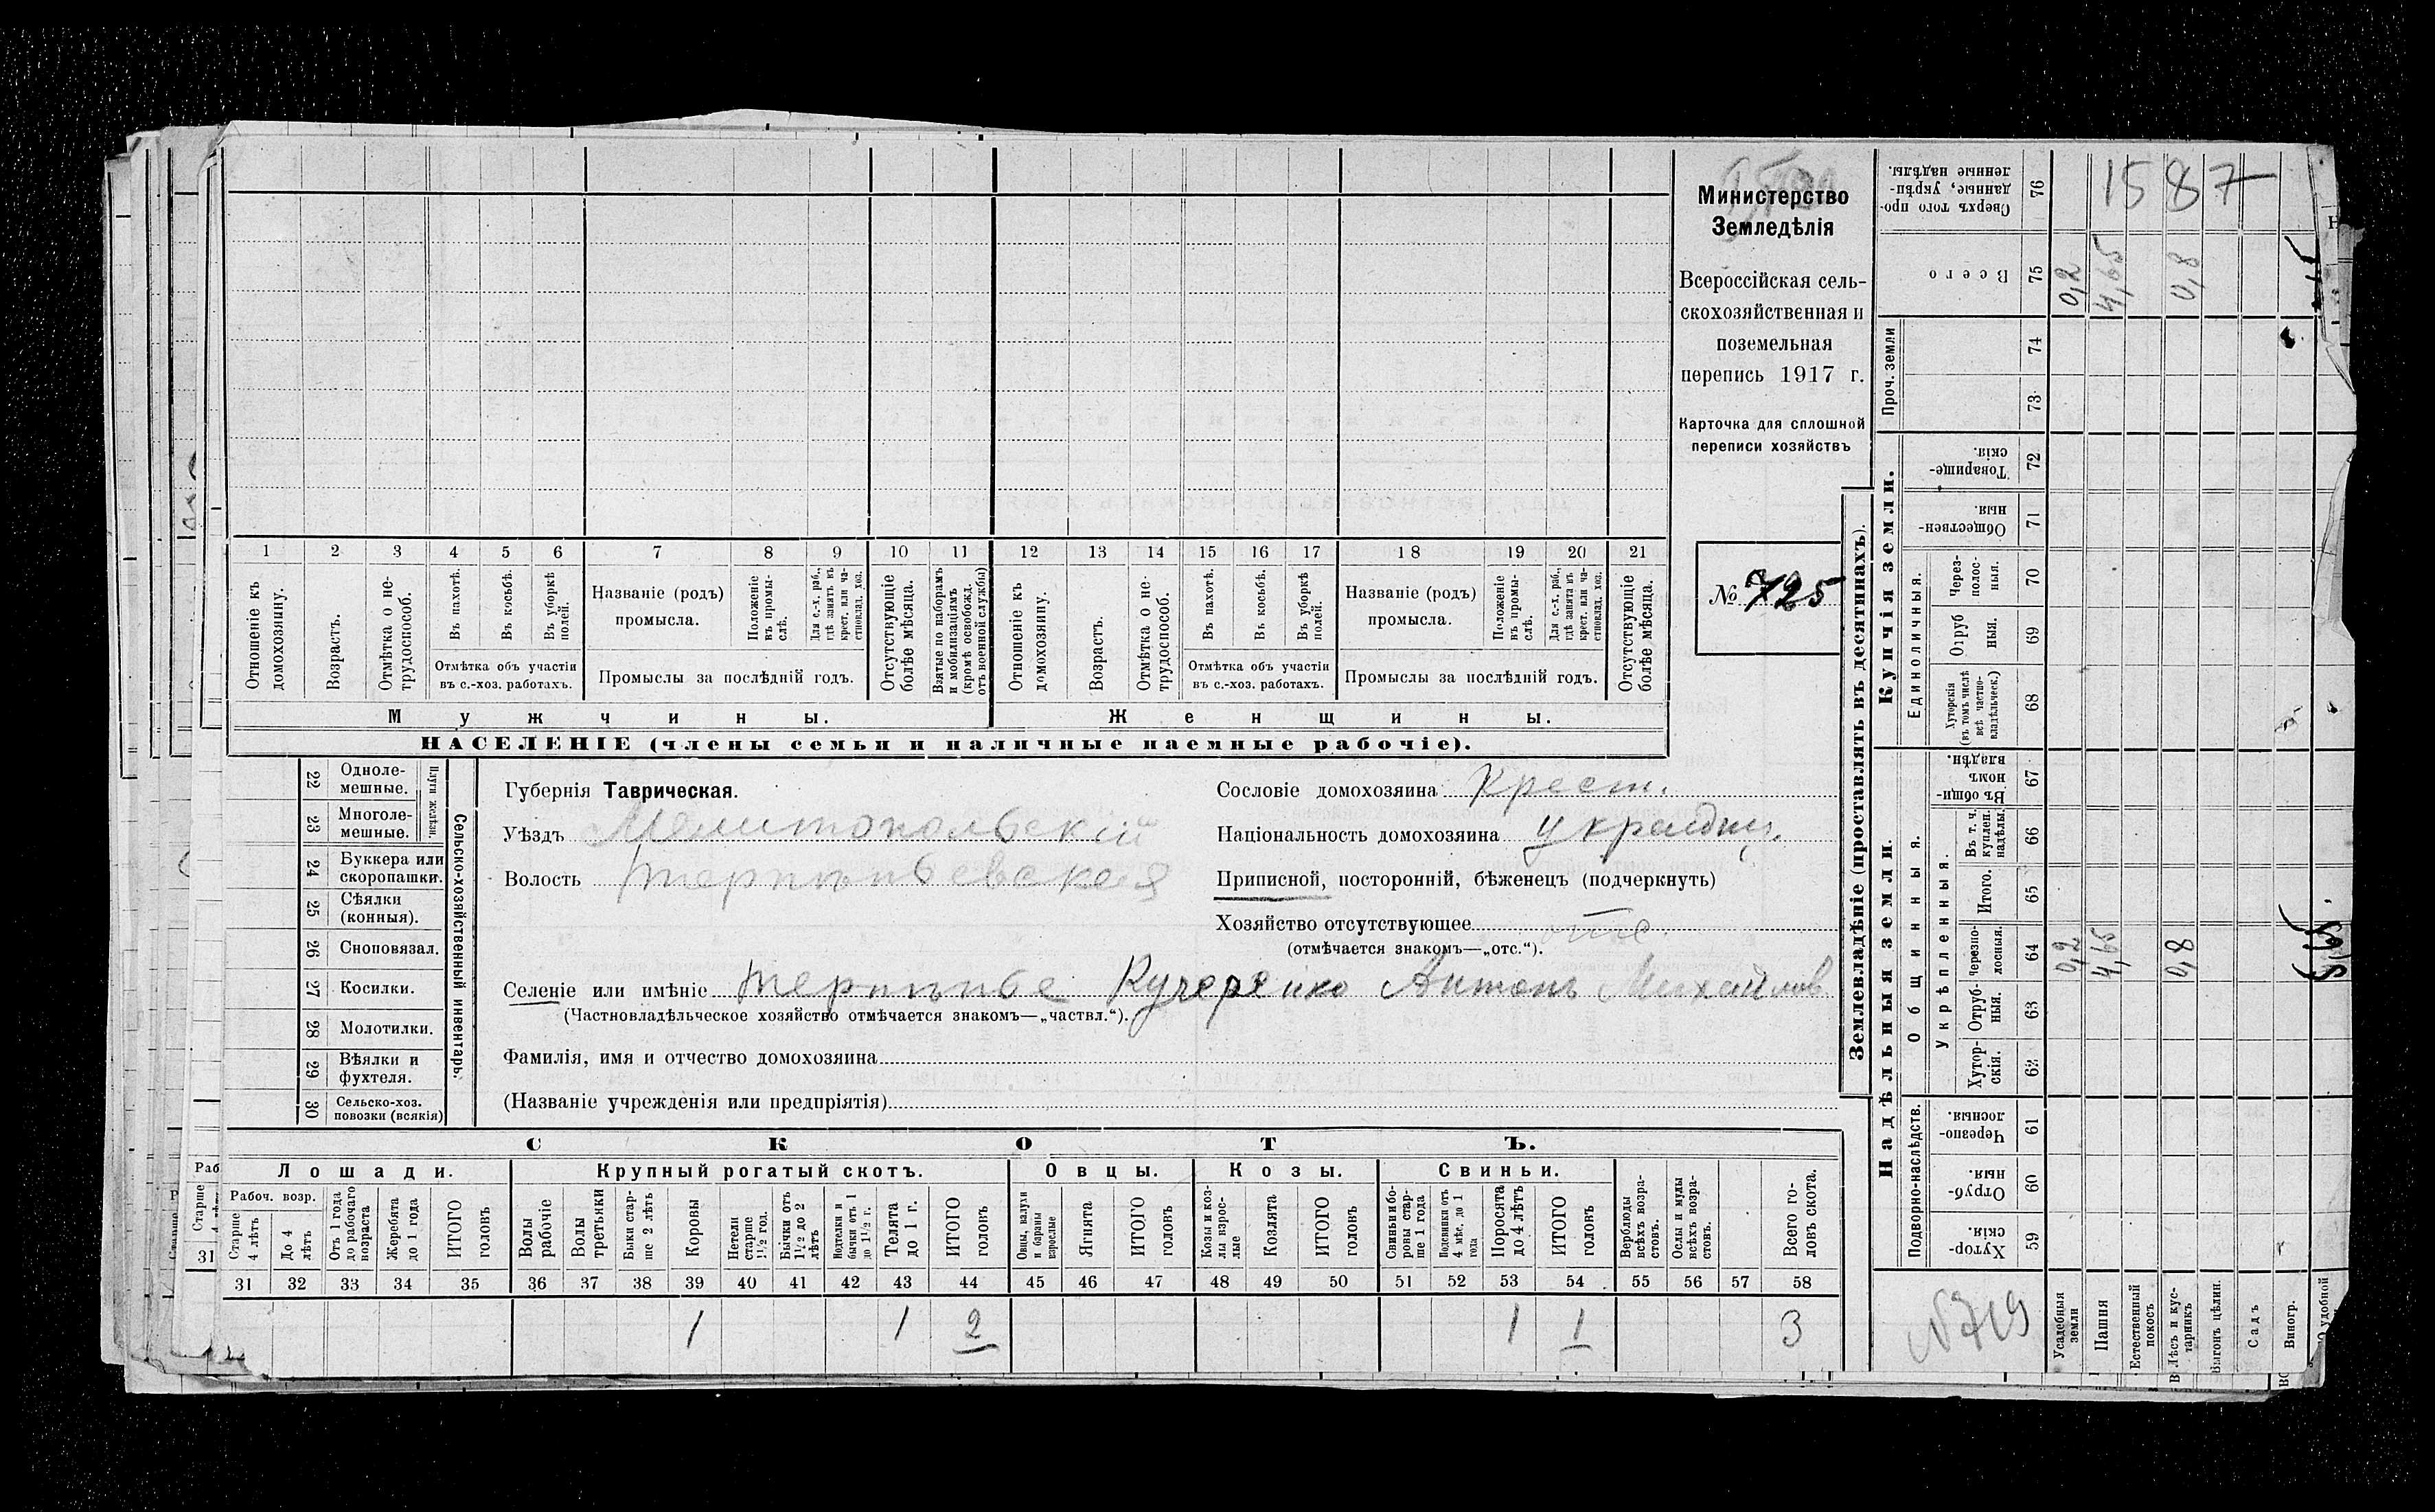 Министерство
Земледѣлія
Всероссійская сель-
скохозяйственная и
поземельная
перепись 1917 г.
Карточка для сплошной
переписи хозяйствъ
№ 725
1 2 3 4 5 6 7 8 9 10 11 12 13 14 15 16 17 18 19 20 21
Отношеніе къ домохозяину.
Возрастъ.
Отмѣтка о не-трудоспособ.
Въ пахотѣ.
Въ косьбѣ.
Въ уборкѣ полей.
Отмѣтка объ участіи
въ с.-хоз. работахъ.
Названіе (родъ)
промысла.
Положеніе въ промы-слѣ.
Для с.-х. раб., гдѣ занятъ въ крест. или ча-стновлад. хоз.
Промыслы за послѣдній годъ.
Отсутствующіе болѣе мѣсяца.
Взятые по наборамъ и мобилизаціямъ (кромѣ освобожд. отъ военной службы)
Отношеніе къ домохозяину.
Возрастъ.
Отмѣтка о не-трудоспособ.
Въ пахотѣ.
Въ косьбѣ.
Въ уборкѣ полей.
Отмѣтка объ участіи
въ с.-хоз. работахъ.
Названіе (родъ)
промысла.
Положеніе въ промы-слѣ.
Для с.-х. раб., гдѣ занята въ крест. или ча-стновлад. хоз.
Промыслы за послѣдній годъ.
Отсутствующіе болѣе мѣсяца.
Мужчины.
Женщины.
НАСЕЛЕНІЕ (члены семьи и наличные наемные рабочіе).
Сельско-хозяйственный инвентарь.
Плуги желѣзн.
22 Одноле-мешные.
23 Многоле-мешные.
24 Буккера или скоропашки.
25 Сѣялки (конныя).
26 Сноповязал.
27 Косилки.
28 Молотилки.
29 Вѣялки и фухтеля.
30 Сельско-хоз. повозки (всякія)
Губернія Таврическая.
Уѣздъ Мелитопольскій
Волость Терпѣньевская
Сословіе домохозяина Крест.
Національность домохозяина украинц.
Приписной, посторонній, бѣженецъ (подчеркнуть)
Хозяйство отсутствующее отс.
(отмѣчается знакомъ—„отс.“).
Селеніе или имѣніе Терпѣнье Кучеренко Антонъ Михайлов
(Частновладѣльческое хозяйство отмѣчается знакомъ—„частвл.“).
Фамилія, имя и отчество домохозяина
(Названіе учрежденія или предпріятія)
СКОТЪ.
Лошади. Крупный рогатый скотъ. Овцы. Козы. Свиньи.
Рабоч. возр.
Старше 4 лѣтъ
До 4 лѣтъ
Отъ 1 года до рабочаго возраста
Жеребята до 1 года
ИТОГО головъ
Волы рабочіе
Волы третьяки
Быки стар-ше 2 лѣтъ
Коровы
Нетели старше 1½ год.
Бычки отъ 1½ до 2 лѣтъ
Нетелки и бычки отъ 1 до 1½ г.
Телята до 1 г.
ИТОГО головъ
Овцы, валухи и бараны взрослые
Ягнята
ИТОГО головъ
Козы и коз-лы взрос-лые
Козлята
ИТОГО головъ
Свиньи и бо-ровы стар-ше 1 года
Подсвинки отъ 4 мѣс. до 1 года
Поросята до 4 лѣтъ
ИТОГО головъ
Верблюды всѣхъ возра-стовъ.
Ослы и мулы всѣхъ возра-стовъ.
Всего го-ловъ скота.
31 32 33 34 35 36 37 38 39 40 41 42 43 44 45 46 47 48 49 50 51 52 53 54 55 56 57 58
1 1 2 1 1 3
Землевладѣніе (проставлять въ десятинахъ).
Купчія земли.
Надѣльныя земли.
76 Сверхъ того про-данные, укрѣп-ленные надѣлы.
1587
75 Всего
0,2
4,65
0,8
Проч. земли
74
73
72 Товарище-скія.
71 Обществен-ныя
Единоличныя.
70 Через-полос-ныя.
69 Отруб ныя.
68 Хуторскія (въ томъ числѣ всѣ частно-владѣльческ.)
Общинныя.
67 Въ общи-номъ владѣн.
Укрѣпленныя.
66 Въ т. ч. куплен. надѣлы.
65 Итого.
64 Черезпо-лосныя.
0,2
4,65
0,8
5,65
63 Отруб-ныя.
62 Хутор-скія.
Подворно-наслѣдств.
61 Черезпо-лосныя.
60 Отруб-ныя.
59 Хутор-скія.
№719
Усадебныя земли
Пашня
Естественный покосъ
Лѣсъ и кус-тарникъ
Выгонъ цѣлин.
Садъ
Виногр.
удобной